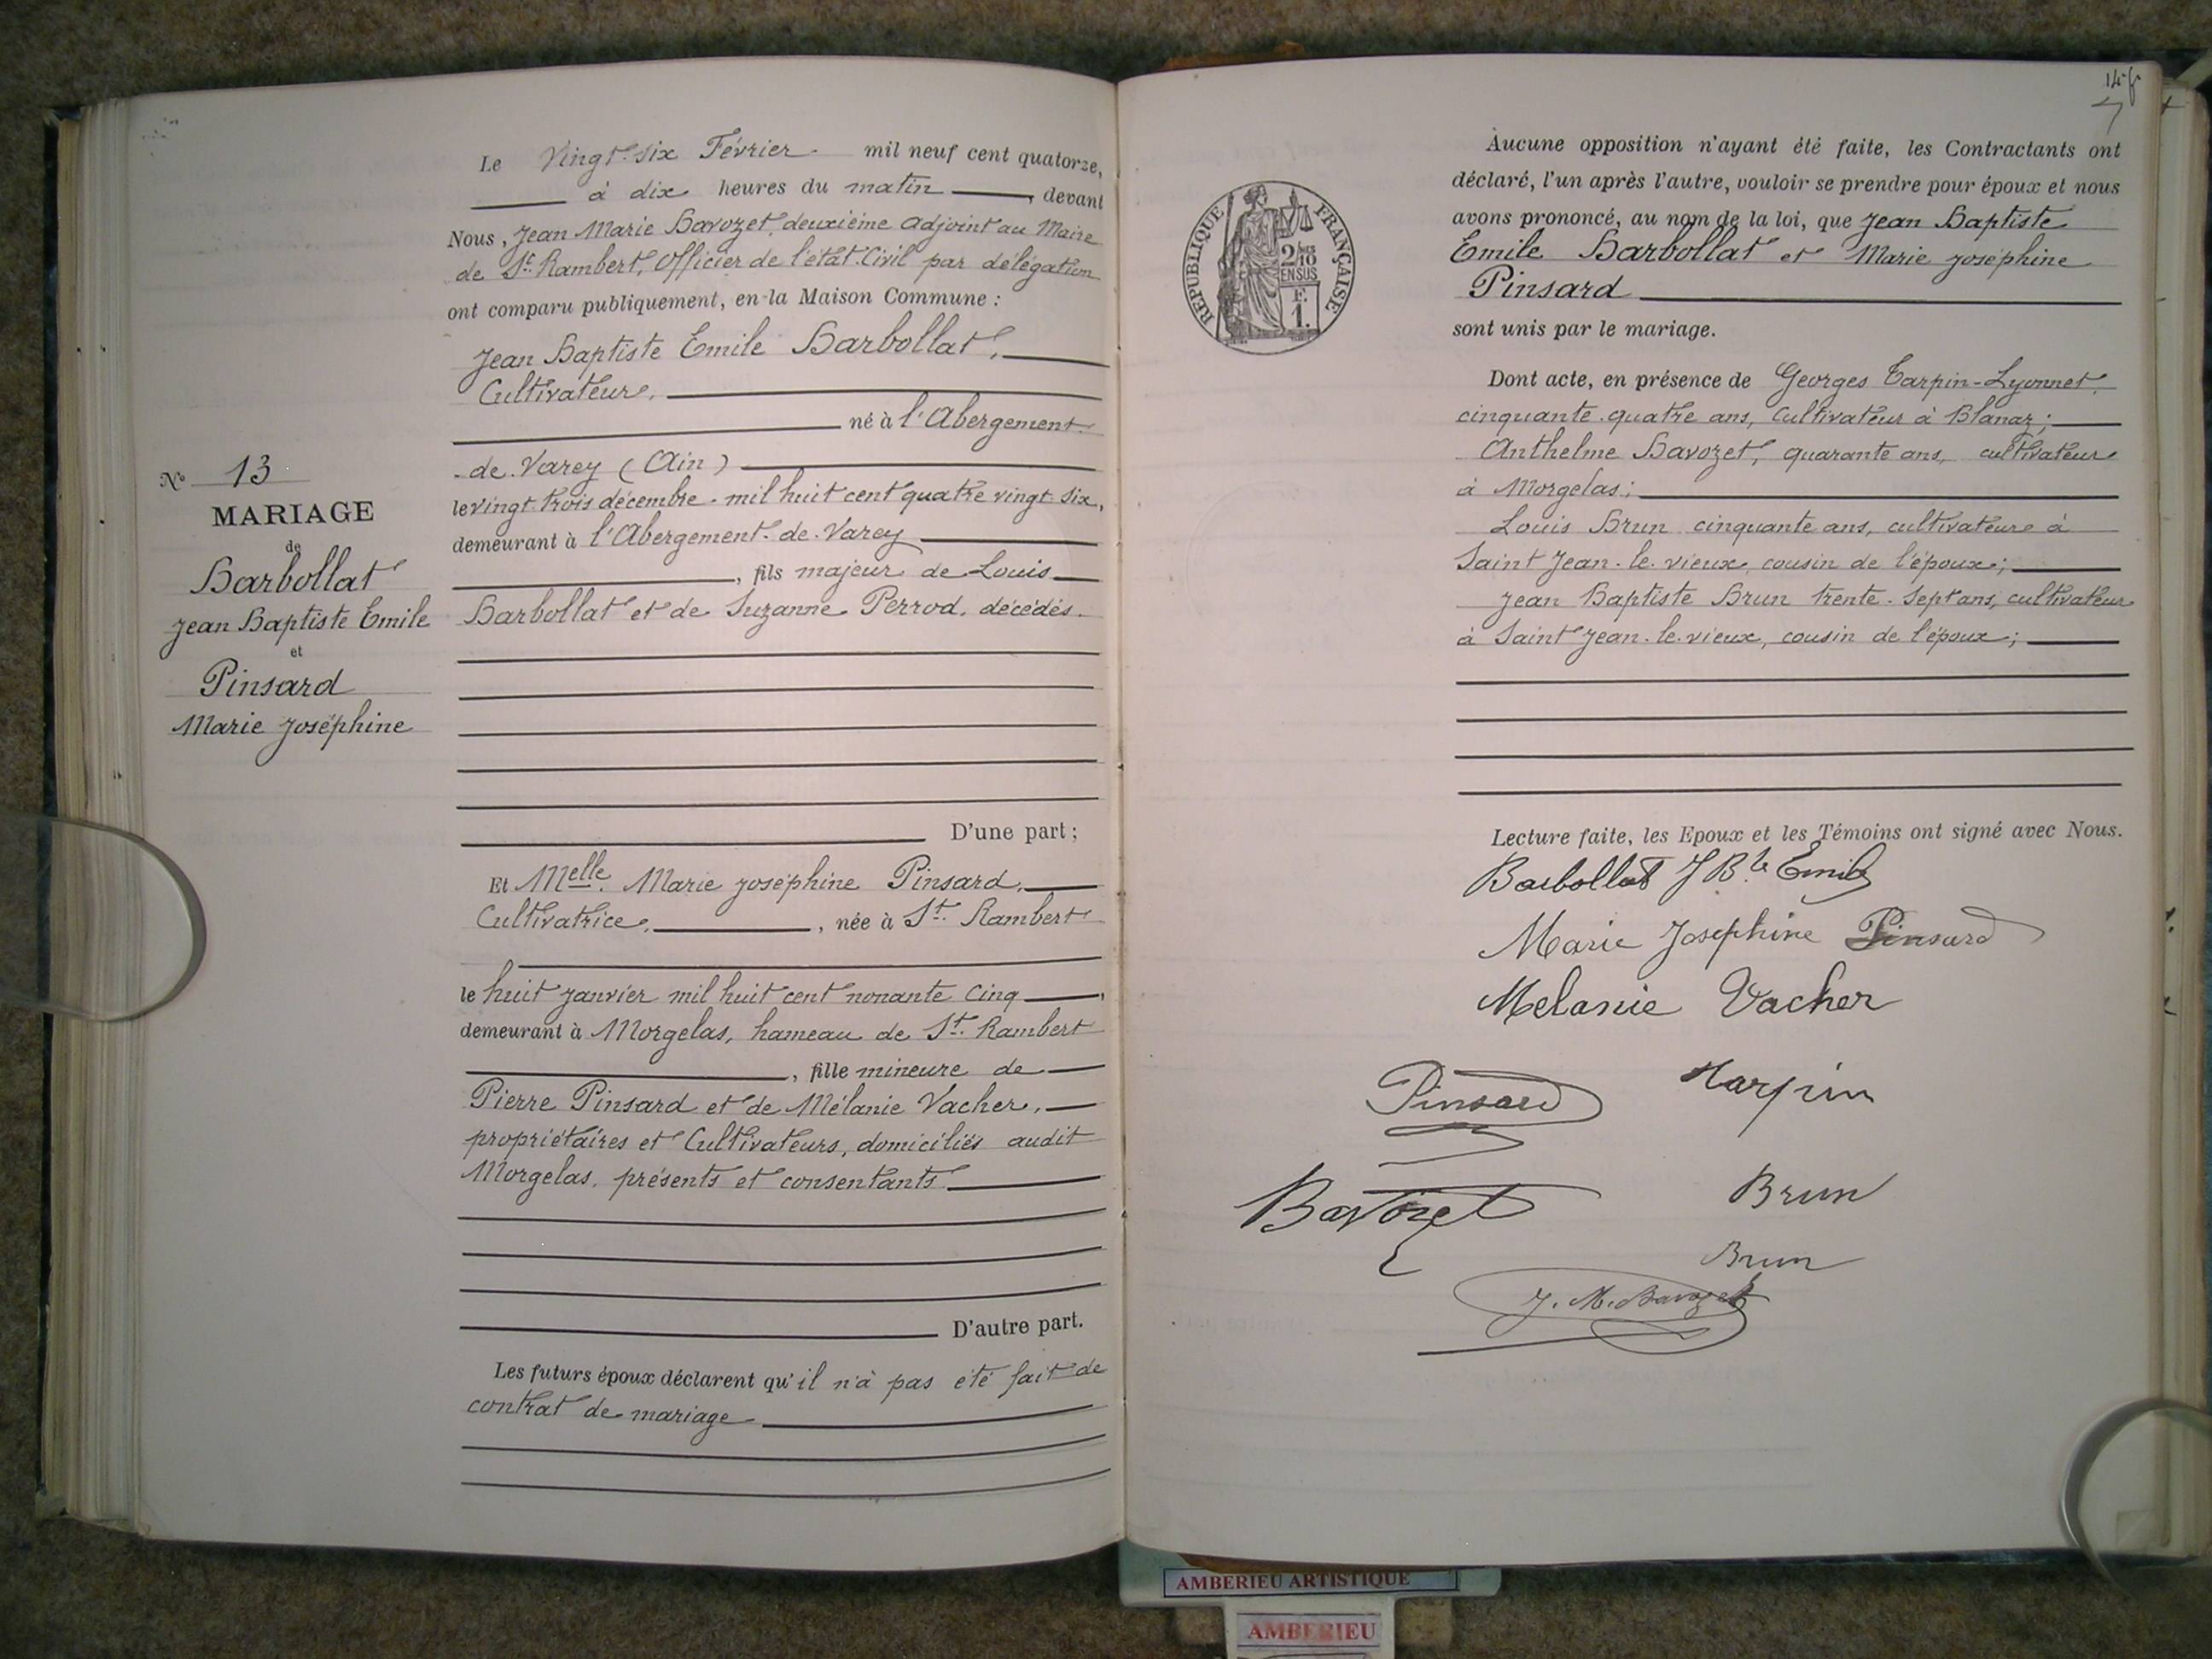 N° 13
MARIAGE
de
Barbollat
Jean Baptiste Emile
et
Pinsard
Marie Joséphine
Le Vingt-six Février mil neuf cent quatorze,
à dix heures du matin, devant
Nous, Jean Marie Bavozet, deuxième adjoint au Maire
de St Rambert, Officier de l'état-Civil par délégation
ont comparu publiquement, en la Maison Commune :
Jean Baptiste Emile Barbollat,
Cultivateur,
né à l'Abergement
de Varey (Ain)
le vingt trois décembre mil huit cent quatre vingt six,
demeurant à l'Abergement de Varey
, fils majeur de Louis
Barbollat et de Suzanne Perrod, décédés.
D'une part ;
Et Melle Marie Joséphine Pinsard,
Cultivatrice, , née à St Rambert
le huit janvier mil huit cent nonante cinq,
demeurant à Morgelas, hameau de St Rambert
, fille mineure de
Pierre Pinsard et de Mélanie Vacher,
propriétaires et Cultivateurs, domiciliés audit
Morgelas, présents et consentants
D'autre part.
Les futurs époux déclarent qu'il n'à pas été fait de
contrat de mariage
7
RÉPUBLIQUE FRANÇAISE
2/10
EN SUS
F.
1.
Aucune opposition n'ayant été faite, les Contractants ont
déclaré, l'un après l'autre, vouloir se prendre pour époux et nous
avons prononcé, au nom de la loi, que Jean Baptiste
Emile Barbollat et Marie Joséphine
Pinsard
sont unis par le mariage.
Dont acte, en présence de Georges Tarpin-Lyonnet,
cinquante-quatre ans, Cultivateur à Blanaz ;
Anthelme Bavozet, quarante ans, cultivateur
à Morgelas ;
Louis Brun cinquante ans, cultivateur à
Saint Jean-le-vieux, cousin de l'époux ;
Jean Baptiste Brun trente-sept ans, cultivateur
à Saint Jean-le-vieux, cousin de l'époux ;
Lecture faite, les Epoux et les Témoins ont signé avec Nous.
Barbollat J Bte Emile
Marie Josephine Pinsard
Melanie Vacher
Pinsard
Tarpin
Bavozet
Brun
Brun
J. M. Bavozet
AMBERIEU ARTISTIQUE
AMBERIEU